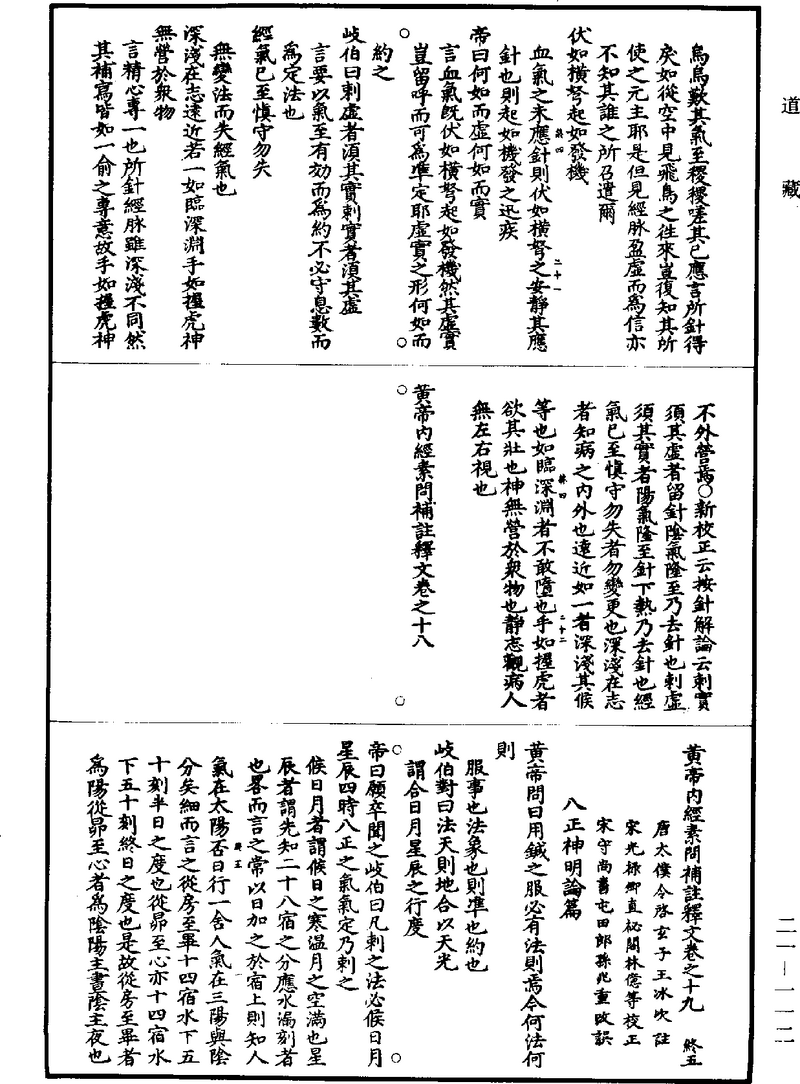 道藏
烏烏歎其氣至稷稷嗟其已應言所針得
失如從空中見飛鳥之往來豈復知其所
使之元主耶是但見經脉盈虛而為信亦
不知其誰之所召遣爾
伏如橫弩起如發機
血氣之未應針則伏如橫弩之安靜其應
針也則起如機發之迅疾
帝曰何如而虛何如而實
言血氣既伏如橫弩起如發機然其虛實
豈留呼而可為準定耶虛實之形何如而
約之
岐伯曰刺虛者須其實刺實者須其虛
言要以氣至有効而為約不必守息數而
為定法也
經氣已至慎守勿失
無變法而失經氣也
深淺在志遠近若一如臨深淵手如握虎神
無營於衆物
言精心專一也所針經脉雖深淺不同然
其補寫皆如一俞之專意故手如握虎神
不外營焉○新校正云按針解論云刺實
須其虛者留針陰氣隆至乃去針也刺虛
須其實者陽氣隆至針下熱乃去針也經
氣已至慎守勿失者勿變更也深淺在志
者知病之內外也遠近如一者深淺其候
等也如臨深淵者不敢墮也手如握虎者
欲其壯也神無營於衆物也靜志觀病人
無左右視也
黃帝內經素問補註釋文卷之十八
黃帝內經素問補註釋文卷之十九 終五
唐太僕令啓玄子王冰次註
宋光祿卿直祕閣林億等校正
宋守尚書屯田郎孫兆重改誤
八正神明論篇
黃帝問曰用鍼之服必有法則焉今何法何
則
服事也法象也則準也約也
岐伯對曰法天則地合以天光
謂合日月星辰之行度
帝曰願卒聞之岐伯曰凡刺之法必候日月
星辰四時八正之氣氣定乃刺之
候日月者謂候日之寒温月之空滿也星
辰者謂先知二十八宿之分應水漏刻者
也畧而言之常以日加之於宿上則知人
氣在太陽否日行一舍人氣在三陽與陰
分矣細而言之從房至畢十四宿水下五
十刻半日之度也從昴至心亦十四宿水
下五十刻終日之度也是故從房至畢者
為陽從昴至心者為陰陽主晝陰主夜也
二一—一一二